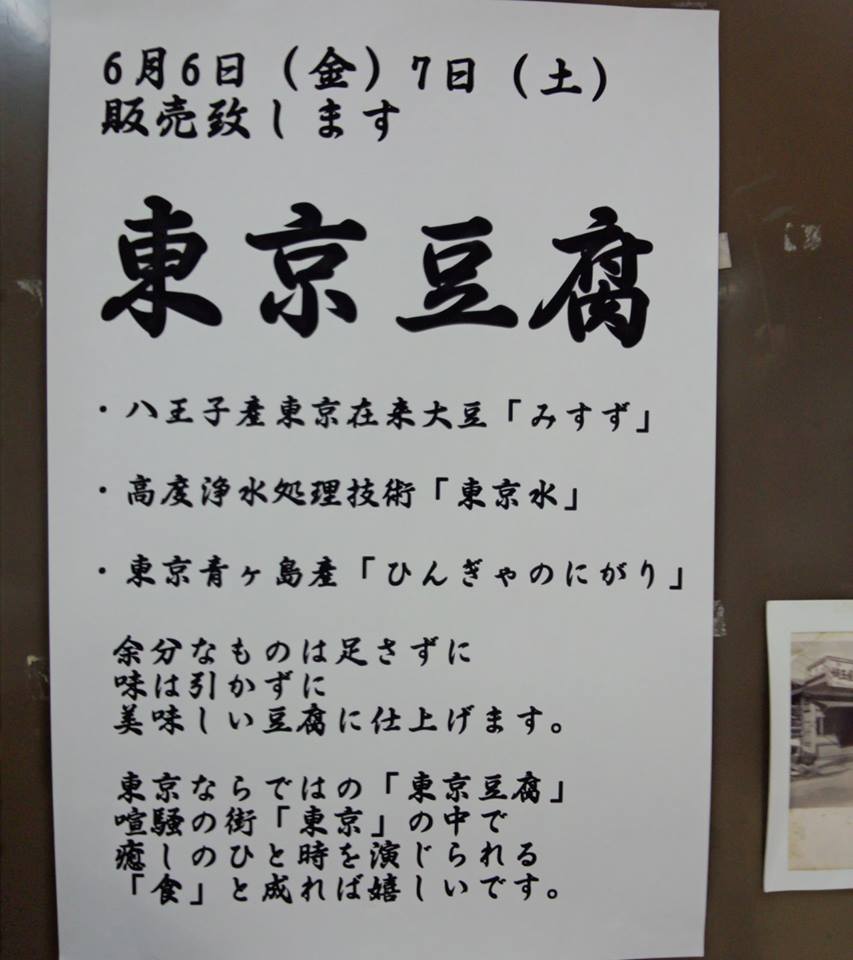 6月6日（金）7日（土）
販売致します
東京豆腐
・八王子産東京在来大豆「みすず」
・高度浄水処理技術「東京水」
・東京青ヶ島産「ひんぎゃのにがり」
余分なものは足さずに
味は引かずに
美味しい豆腐に仕上げます。
東京ならではの「東京豆腐」
喧騒の街「東京」の中で
癒しのひと時を演じられる
「食」と成れば嬉しいです。